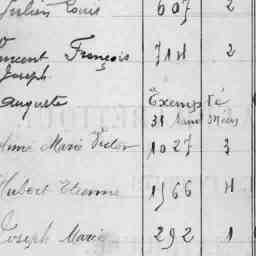 Julien Louis 607 2
Vincent François 714 2
Joseph
Auguste Exempté
31
Aimé Marie Victor 1027 3
Hubert Etienne 1966 4
Joseph Marie 292 1